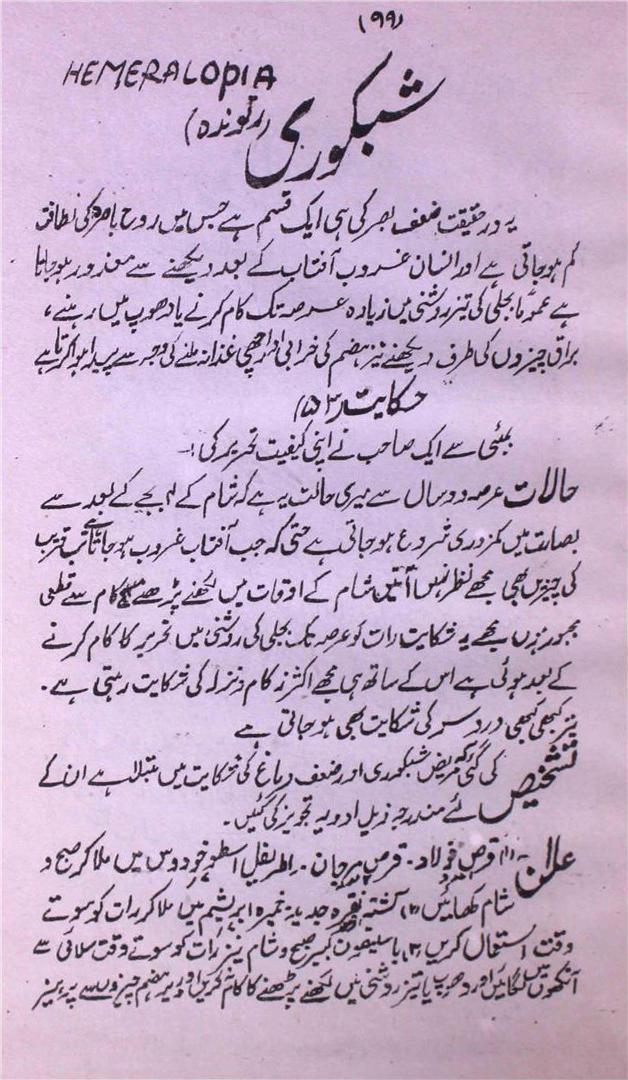 (۹۹)
HEMERALOPIA
شبکوری
(رتوندہ)
یہ درحقیقت ضعف بصر کی ہی ایک قسم ہے جس میں روح باصرہ کی لطافت
کم ہوجاتی ہے اور انسان غروب آفتاب کے بعد دیکھنے سے معذور ہوجاتا
ہے عموماً بجلی کی تیز روشنی میں زیادہ عرصہ تک کام کرنے یا دھوپ میں رہنے،
براق چیزوں کی طرف دیکھنے نیز ہضم کی خرابی اور اچھی غذا نہ ملنے کی وجہ سے پیدا ہوا کرتا ہے
حکایت (۵۳)
بمبئی سے ایک صاحب نے اپنی کیفیت تحریر کی:-
حالات عرصہ دو سال سے میری حالت یہ ہے کہ شام کے ۶ بجے کے بعد سے
بصارت میں کمزوری شروع ہوجاتی ہے حتیٰ کہ جب آفتاب غروب ہوجاتا ہے تب قریب
کی چیزیں بھی مجھے نظر نہیں آتیں شام کے اوقات میں لکھنے پڑھنے کے کام سے قطعی
مجبور ہوں مجھے یہ شکایت رات کو عرصہ تک بجلی کی روشنی میں تحریر کا کام کرنے
کے بعد ہوئی ہے اس کے ساتھ ہی مجھے اکثر زکام و نزلہ کی شکایت رہتی ہے۔
نیز کبھی کبھی درد سر کی شکایت بھی ہوجاتی ہے
تشخیص کی گئی کہ مریض شبکوری اور ضعف دماغ کی شکایت میں مبتلا ہے ان کے
لئے مندرجہ ذیل ادویہ تجویز کی گئیں۔
علاج (۱) قرص فولاد۔ قرص مرجان۔ اطریفل اسطوخودوس میں ملاکر صبح و
شام کھائیں (۲) کشتہ نقرہ جدید خمیرہ ابریشم میں ملاکر رات کو سوتے
وقت استعمال کریں (۳) باسلیقون کبیر صبح و شام نیز رات کو سوتے وقت سلائی سے
آنکھوں میں لگائیں اور دھوپ یا تیز روشنی میں لکھنے پڑھنے کا کام نہ کریں اور دیر ہضم چیزوں سے پرہیز